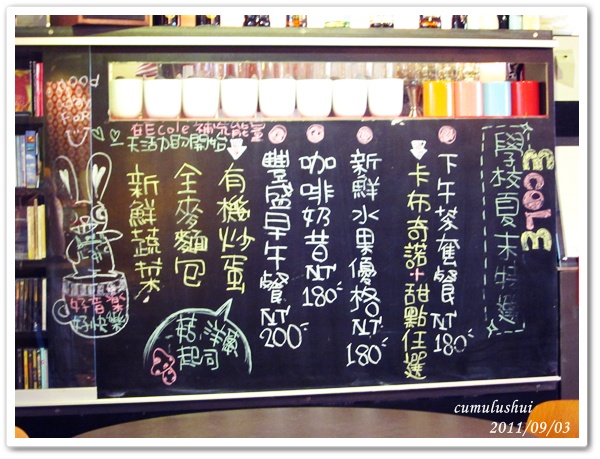 Ecole
學校夏末特選
下午茶套餐 NT 180
卡布奇諾+甜點任選
新鮮水果優格 NT 180
咖啡奶昔 NT 180
豐盛早午餐 NT 200
有機炒蛋
全麥麵包
新鮮蔬菜
洋蔥
起司
在Ecole 補充能量
天活力的開始
好音樂
好快樂
cumulushui
2011/09/03